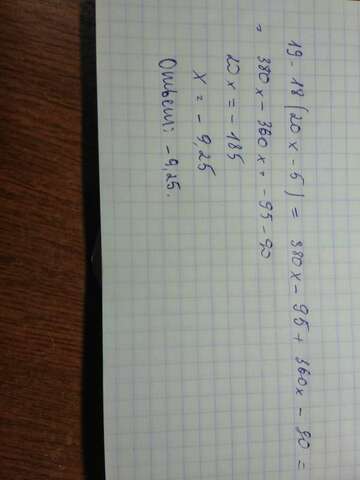 19 - 18 (20x - 5) = 380x - 95 + 360x - 90 =
= 380x - 360x = - 95 - 90
20x = - 185
x = - 9,25
Ответ: - 9,25.